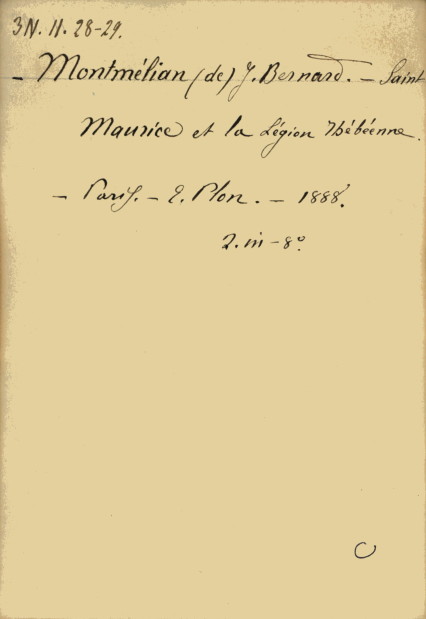 3N. 11. 28-29.
- Montmélian (de) J. Bernard. - Saint
Maurice et la Légion Thébéenne.
- Paris. - E. Plon. - 1888.
2. in-8°.
C